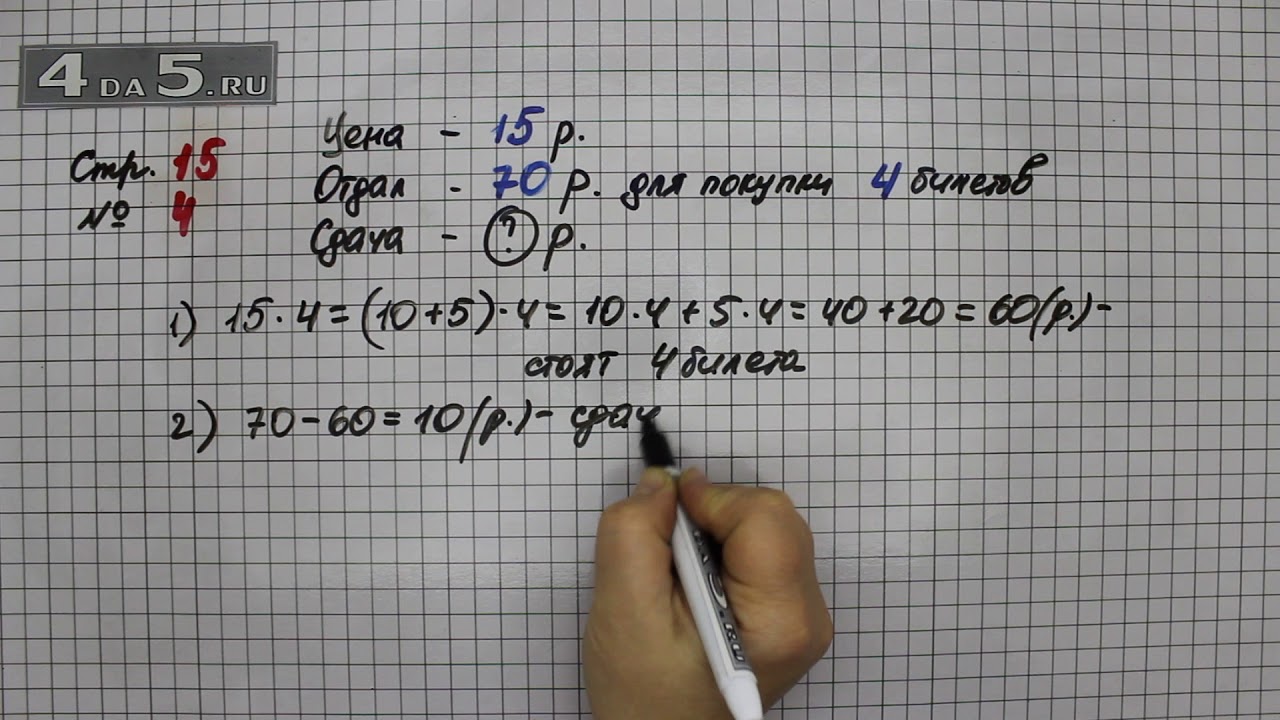 4DA5.RU
Цена - 15 р.
Стр. 15
Отдал - 70 р. для покупки 4 билетов
№ 4
Сдача - ? р.
1) 15·4=(10+5)·4=10·4+5·4=40+20=60(р.)-
стоят 4 билета
2) 70-60=10(р.)- сдач